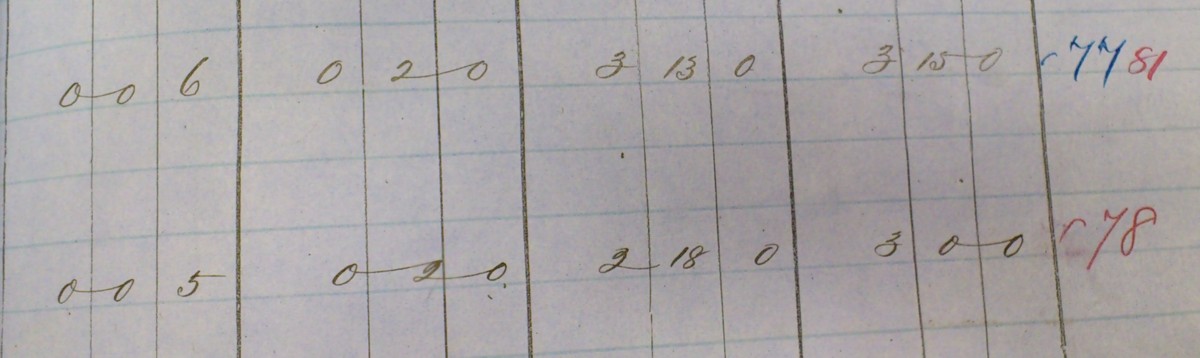 0 0 6 0 2 0 3 13 0 3 15 0 77 81
0 0 5 0 2 0 2 18 0 3 0 0 78